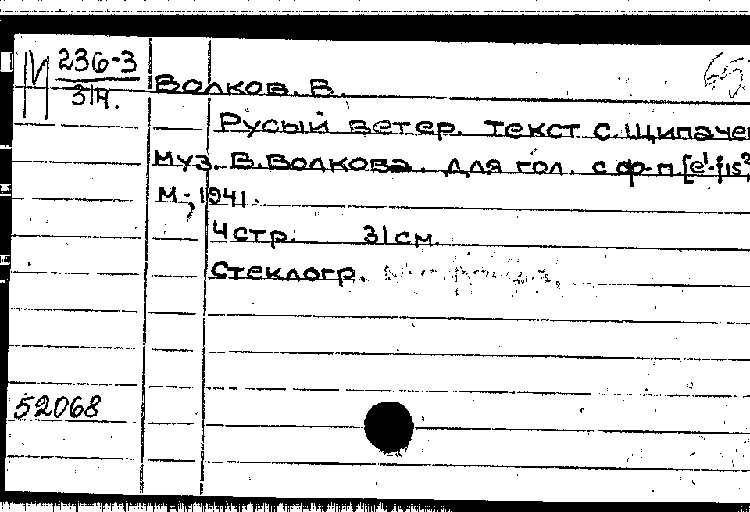 М 236-3
31Я.
Волков. В.
Русый ветер. Текст С. Щипаче
муз. В. Волкова. Для гол. с ф-п. [e¹-fis²
М., 1941.
4 стр. 31 см.
Стеклогр.
52068